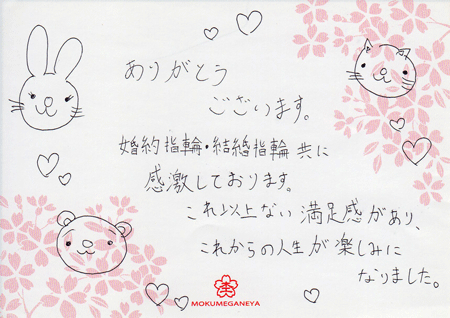 ありがとう
ございます。
婚約指輪・結婚指輪共に
感激しております。
これ以上ない満足感があり、
これからの人生が楽しみに
なりました。
MOKUMEGANEYA